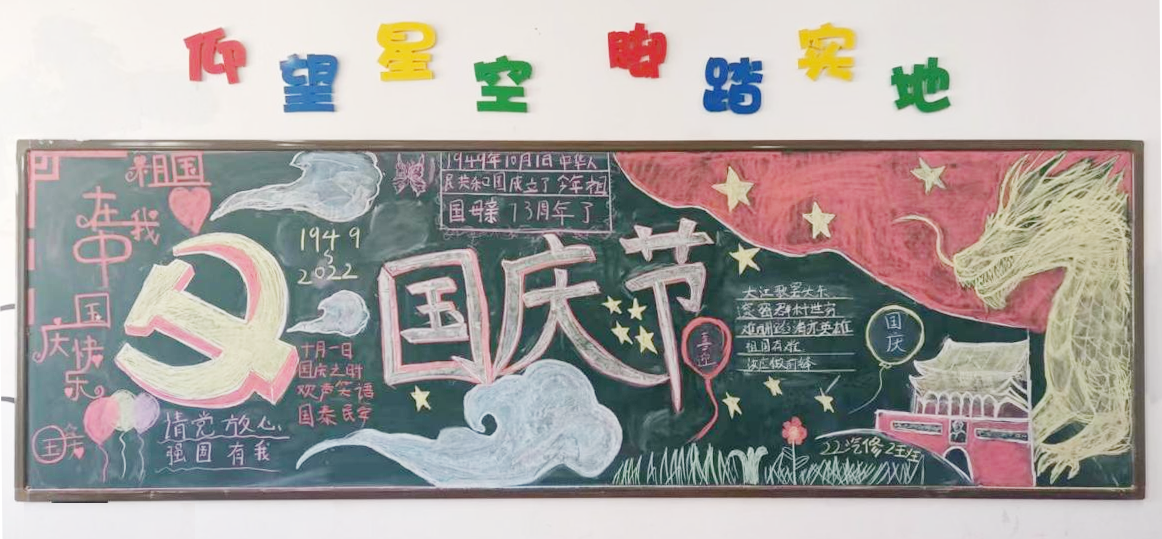 仰望星空 脚踏实地
祖国
在我
中
国庆快乐
国庆
请党放心
强国有我
1949
~
2022
十月一日
国庆之时
欢声笑语
国泰民安
1949年10月1日中华人
民共和国成立了今年祖
国母亲73周年了
国庆节
喜迎
大江歌罢大东
难酬蹈海亦英雄
祖国有难
汝应做前锋
国庆
22汽修2班